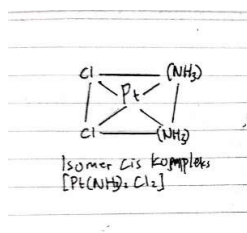 Cl (NH3)
Pt
Cl (NH3)
Isomer cis kompleks
[Pt(NH3)2 Cl2]